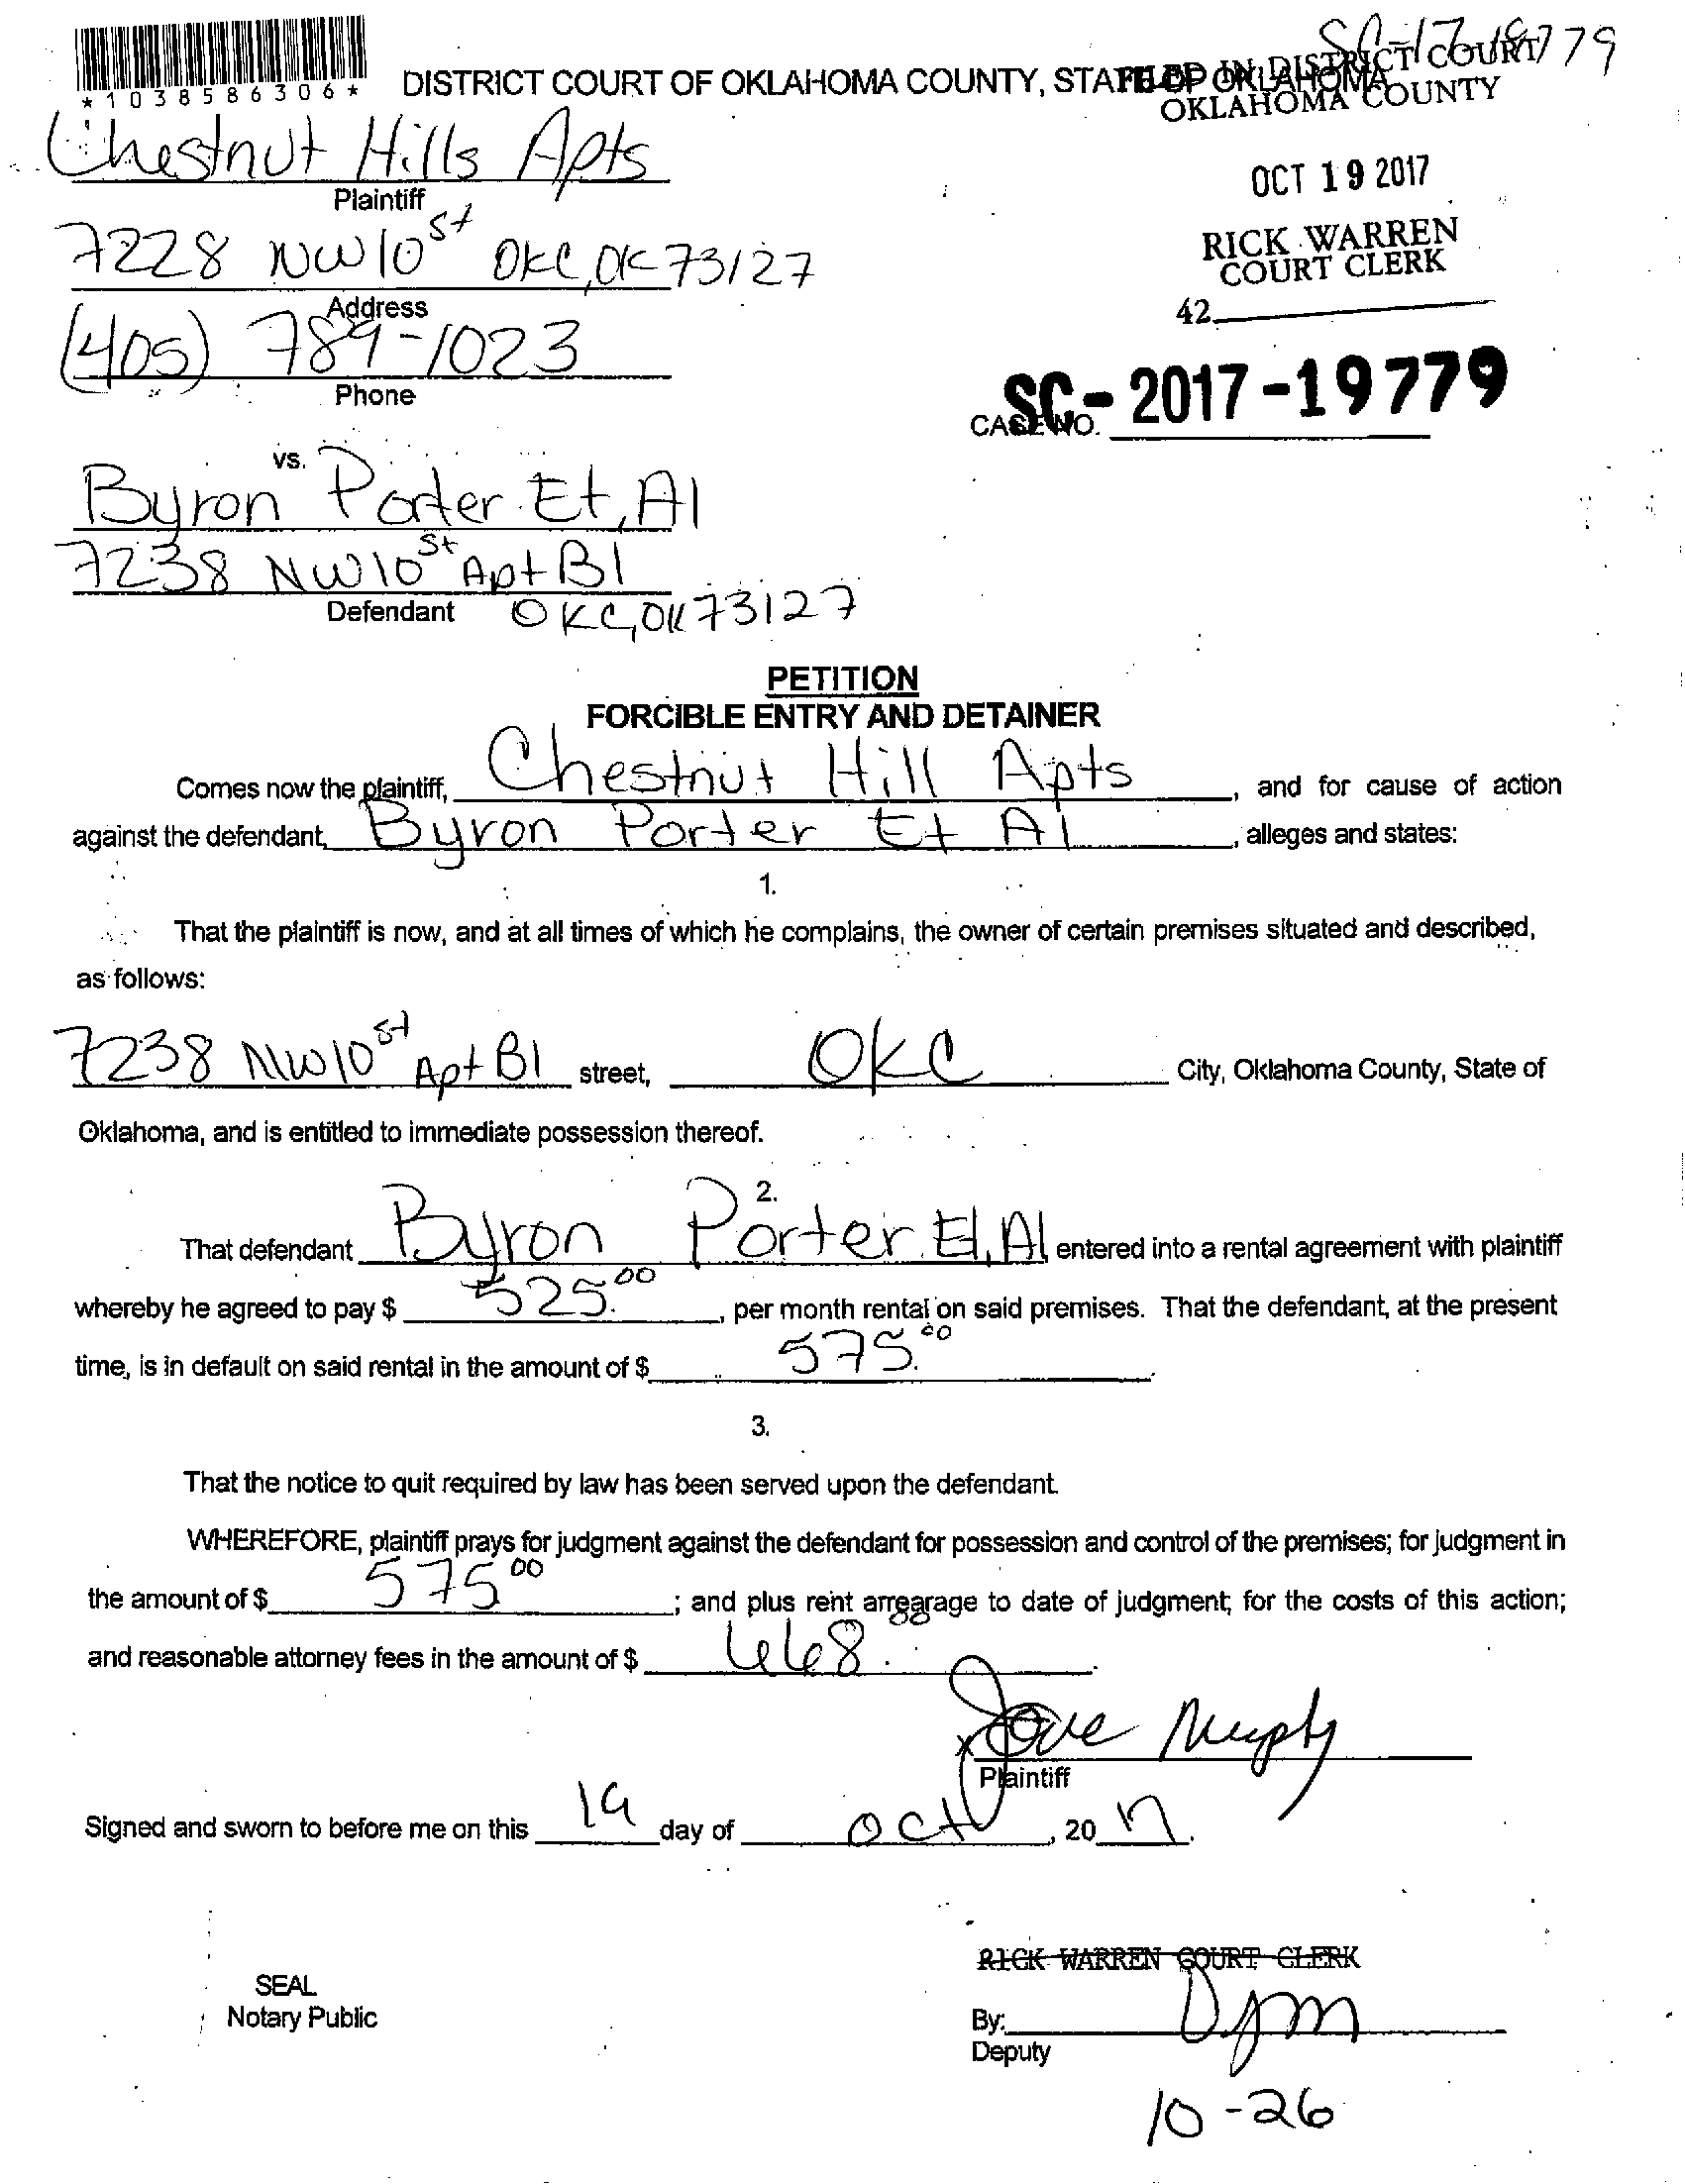 SC-17-19779
*1038586306*
DISTRICT COURT OF OKLAHOMA COUNTY, STATE OF OKLAHOMA
FILED IN DISTRICT COURT
OKLAHOMA COUNTY
Chestnut Hills Apts
Plaintiff
OCT 19 2017
7228 NW 10 St OKC, OK 73127
Address
RICK WARREN
COURT CLERK
42
(405) 789-1023
Phone
CASE NO. SC-2017-19779
vs.
Byron Porter Et, Al
7238 NW 10 St Apt B1
Defendant OKC, OK 73127
PETITION
FORCIBLE ENTRY AND DETAINER
Comes now the plaintiff, Chestnut Hill Apts, and for cause of action
against the defendant, Byron Porter Et Al, alleges and states:
1.
That the plaintiff is now, and at all times of which he complains, the owner of certain premises situated and described,
as follows:
7238 NW 10 St Apt B1 street, OKC City, Oklahoma County, State of
Oklahoma, and is entitled to immediate possession thereof.
2.
That defendant Byron Porter Et, Al entered into a rental agreement with plaintiff
whereby he agreed to pay $ 525.00, per month rental on said premises. That the defendant, at the present
time, is in default on said rental in the amount of $ 575.00.
3.
That the notice to quit required by law has been served upon the defendant.
WHEREFORE, plaintiff prays for judgment against the defendant for possession and control of the premises; for judgment in
the amount of $ 575 00; and plus rent arrearage to date of judgment; for the costs of this action;
and reasonable attorney fees in the amount of $ 668.00.
x Jove Murphy
Plaintiff
Signed and sworn to before me on this 19 day of Oct, 2017.
RICK WARREN COURT CLERK
SEAL
Notary Public
By:
Deputy
10-26